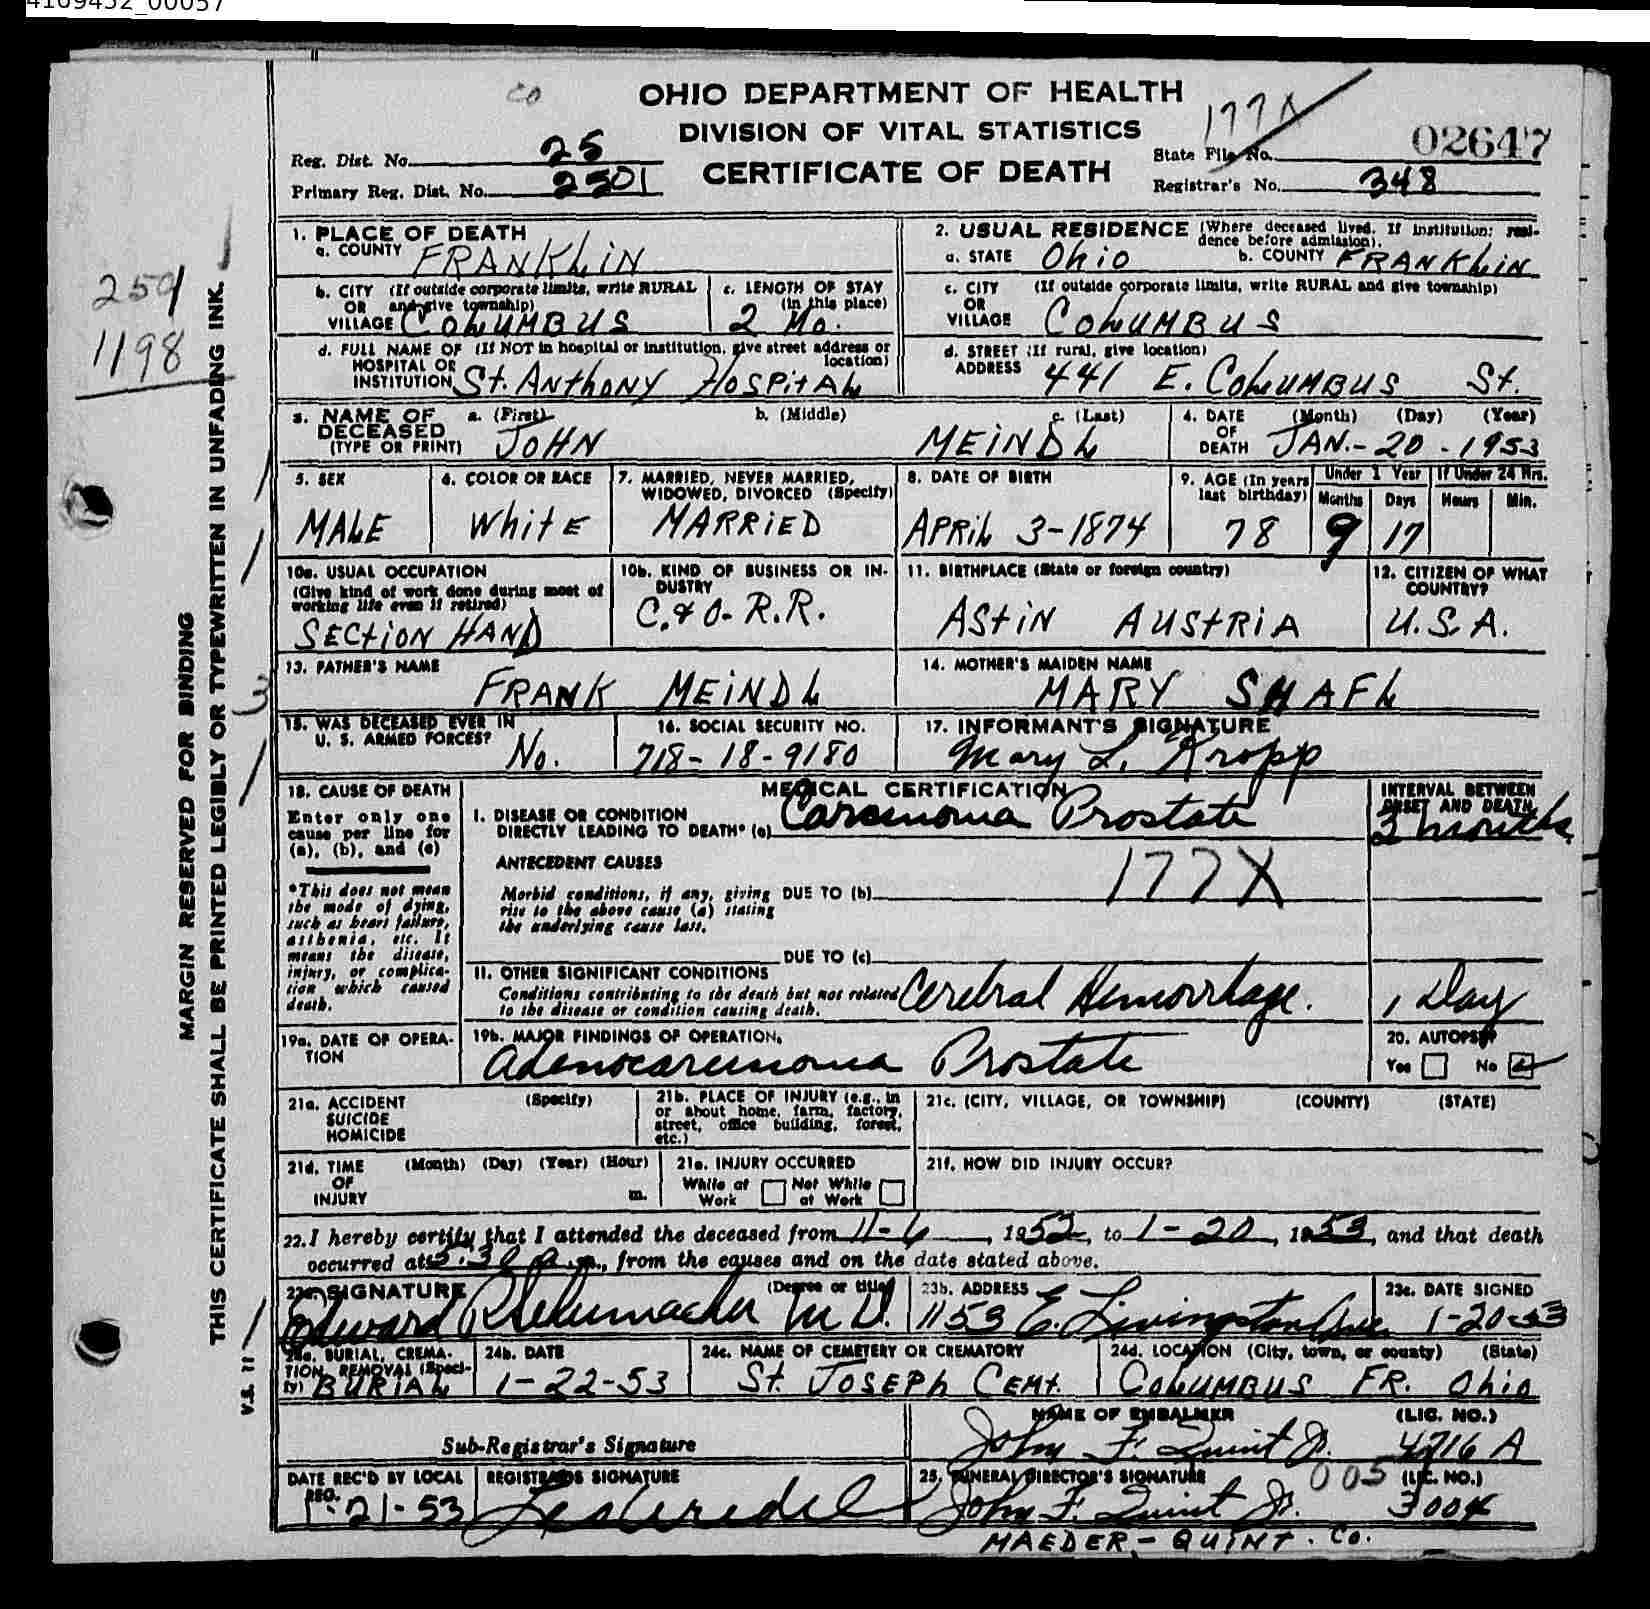 4109452_00057
CO
OHIO DEPARTMENT OF HEALTH
DIVISION OF VITAL STATISTICS
CERTIFICATE OF DEATH
177X
Reg. Dist. No. 25
Primary Reg. Dist. No. 2501
State File No. 02647
Registrar's No. 348
259
1198
MARGIN RESERVED FOR BINDING
THIS CERTIFICATE SHALL BE PRINTED LEGIBLY OR TYPEWRITTEN IN UNFADING INK.
V.S. 11
1. PLACE OF DEATH
a. COUNTY FRANKLIN
2. USUAL RESIDENCE (Where deceased lived. If institution: residence before admission).
a. STATE Ohio b. COUNTY FRANKLIN
b. CITY (If outside corporate limits, write RURAL
OR and give township)
VILLAGE COLUMBUS
c. LENGTH OF STAY
(in this place)
2 Mo.
c. CITY (If outside corporate limits, write RURAL and give township)
OR
VILLAGE COLUMBUS
d. FULL NAME OF (If NOT in hospital or institution, give street address or location)
HOSPITAL OR
INSTITUTION St. ANTHONY HOSPITAL
d. STREET (If rural, give location)
ADDRESS 441 E. COLUMBUS St.
3. NAME OF DECEASED
(TYPE OR PRINT)
a. (First) b. (Middle) c. (Last)
JOHN MEINDL
4. DATE OF DEATH (Month) (Day) (Year)
JAN.-20-1953
5. SEX
MALE
6. COLOR OR RACE
WHITE
7. MARRIED, NEVER MARRIED,
WIDOWED, DIVORCED (Specify)
MARRIED
8. DATE OF BIRTH
APRIL 3-1874
9. AGE (In years
last birthday)
78
Under 1 Year
Months Days
9 17
If Under 24 Hrs.
Hours Min.
10a. USUAL OCCUPATION
(Give kind of work done during most of
working life even if retired)
SECTION HAND
10b. KIND OF BUSINESS OR IN-
DUSTRY
C. & O. R.R.
11. BIRTHPLACE (State or foreign country)
ASTIN AUSTRIA
12. CITIZEN OF WHAT
COUNTRY?
U.S.A.
13. FATHER'S NAME
FRANK MEINDL
14. MOTHER'S MAIDEN NAME
MARY SHAFL
15. WAS DECEASED EVER IN
U. S. ARMED FORCES?
No.
16. SOCIAL SECURITY NO.
718-18-9180
17. INFORMANT'S SIGNATURE
Mary L. Kropp
18. CAUSE OF DEATH
Enter only one
cause per line for
(a), (b), and (c)
*This does not mean
the mode of dying,
such as heart failure,
asthenia, etc. It
means the disease,
injury, or complica-
tion which caused
death.
MEDICAL CERTIFICATION
I. DISEASE OR CONDITION
DIRECTLY LEADING TO DEATH* (a) Carcinoma Prostate
INTERVAL BETWEEN
ONSET AND DEATH
months
ANTECEDENT CAUSES
177X
Morbid conditions, if any, giving DUE TO (b)
rise to the above cause (a) stating
the underlying cause last.
DUE TO (c)
II. OTHER SIGNIFICANT CONDITIONS
Conditions contributing to the death but not related
to the disease or condition causing death.
Cerebral Hemorrhage.
1 Day
19a. DATE OF OPERA-
TION
19b. MAJOR FINDINGS OF OPERATION.
Adenocarcinoma Prostate
20. AUTOPSY
Yes No
21a. ACCIDENT (Specify)
SUICIDE
HOMICIDE
21b. PLACE OF INJURY (e.g., in
or about home, farm, factory,
street, office building, forest,
etc.)
21c. (CITY, VILLAGE, OR TOWNSHIP) (COUNTY) (STATE)
21d. TIME (Month) (Day) (Year) (Hour)
OF
INJURY m.
21e. INJURY OCCURRED
While at Work Not While at Work
21f. HOW DID INJURY OCCUR?
22. I hereby certify that I attended the deceased from 11-6, 1952, to 1-20, 1953, and that death
occurred at 5:30 p.m., from the causes and on the date stated above.
23a. SIGNATURE (Degree or title)
Edward M.D.
23b. ADDRESS
1153 E. Livingston Ave
23c. DATE SIGNED
1-20-53
24a. BURIAL, CREMA-
TION, REMOVAL (Speci-
fy) BURIAL
24b. DATE
1-22-53
24c. NAME OF CEMETERY OR CREMATORY
St. JOSEPH CEMt.
24d. LOCATION (City, town, or county) (State)
COLUMBUS FR. Ohio
Sub-Registrar's Signature
NAME OF EMBALMER (LIC. NO.)
John F. Quint Jr. 4716 A
DATE REC'D BY LOCAL
REG.
1-21-53
REGISTRAR'S SIGNATURE
25. FUNERAL DIRECTOR'S SIGNATURE 005 (LIC. NO.)
John F. Quint Jr. 3004
MAEDER-QUINT. Co.